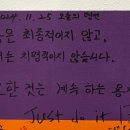 2024. 11. 25 오늘의 명언
은 최종적이지 않고,
는 치명적이지 않습니다.
한 것은 계속 하는 용
Just do it